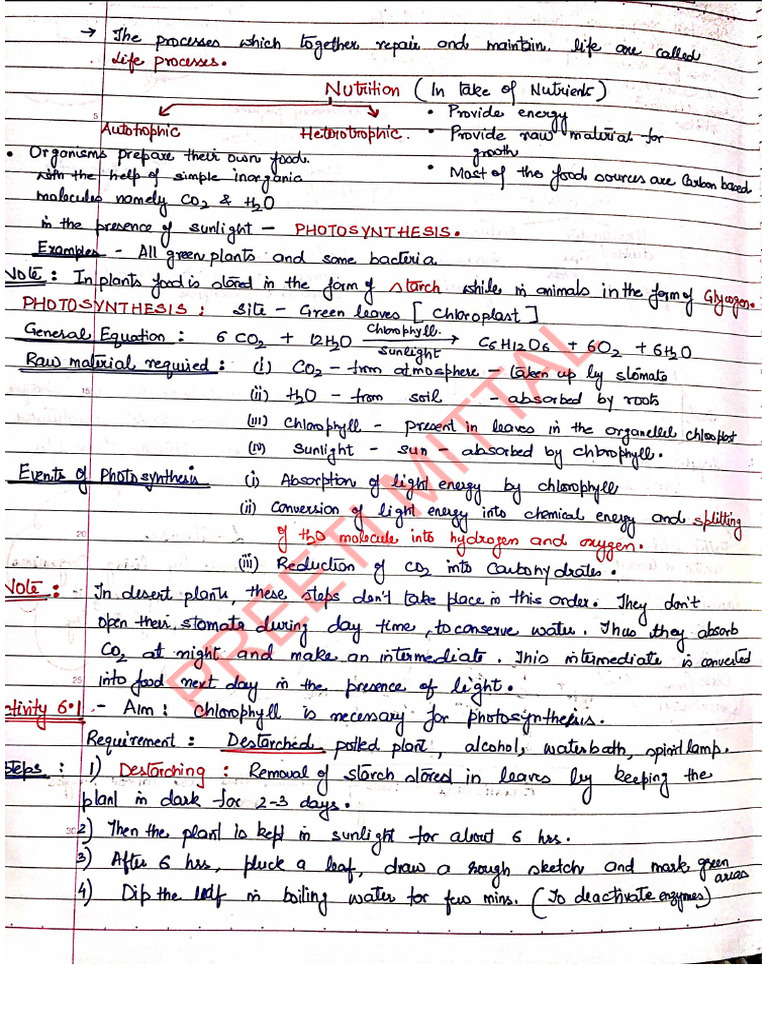 → The processes which together repair and maintain life are called
Life processes.
Nutrition (In take of Nutrients)
• Provide energy
Autotrophic
Heterotrophic.
• Provide raw material for
growth
• Organisms prepare their own food.
with the help of simple inorganic
• Most of the food sources are Carbon based
molecules namely CO2 & H2O
in the presence of sunlight - PHOTOSYNTHESIS.
Examples - All green plants and some bacteria
Note: In plants food is stored in the form of starch while in animals in the form of Glycogen.
PHOTOSYNTHESIS: Site - Green leaves [Chloroplast]
General Equation: 6 CO2 + 12H2O Chlorophyll. Sunlight → C6H12O6 + 6O2 + 6H2O
Raw material required: (i) CO2 - from atmosphere - taken up by stomata
(ii) H2O - from soil - absorbed by roots
(iii) Chlorophyll - present in leaves in the organelle chloroplast
(iv) Sunlight - sun - absorbed by chlorophyll.
Events of Photosynthesis (i) Absorption of light energy by chlorophyll
(ii) Conversion of light energy into chemical energy and splitting
of H2O molecule into hydrogen and oxygen.
(iii) Reduction of CO2 into Carbohydrates.
Note: - In desert plants, these steps don't take place in this order. They don't
open their stomata during day time, to conserve water. Thus they absorb
CO2 at night and make an intermediate. This intermediate is converted
into food next day in the presence of light.
ctivity 6.1 - Aim: Chlorophyll is necessary for photosynthesis.
Requirement: Destarched potted plant, alcohol, waterbath, spirit lamp.
Steps: 1) Destarching: Removal of starch stored in leaves by keeping the
plant in dark for 2-3 days.
2) Then the plant is kept in sunlight for about 6 hrs.
3) After 6 hrs, pluck a leaf, draw a rough sketch and mark green
areas
4) Dip the leaf in boiling water for few mins. (To deactivate enzymes)
PREETI MITTAL
5
15
20
25
30